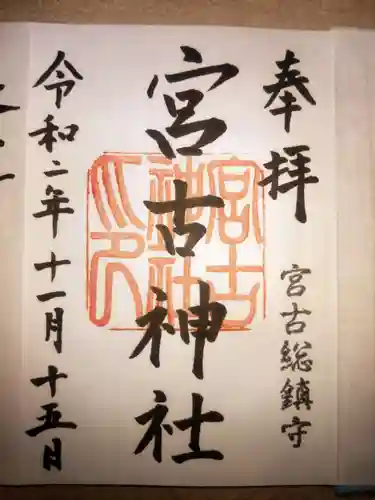 奉拝
宮古総鎮守
宮古神社
宮古神社之印
令和二年十一月十五日